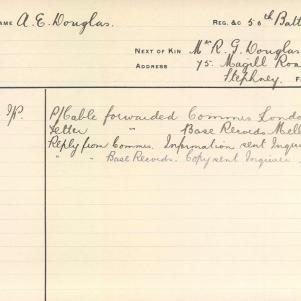 NAME A. E. Douglas. REG. &C 50th Batt
NEXT OF KIN Mr R. G. Douglas
ADDRESS 75 Magill Roa
Stephney. F
P/Cable forwarded Commrs Londo
Letter " Base Records Mell
Reply from Commrs. Information sent Inqui
" " Base Records. Copy sent Inquirer.